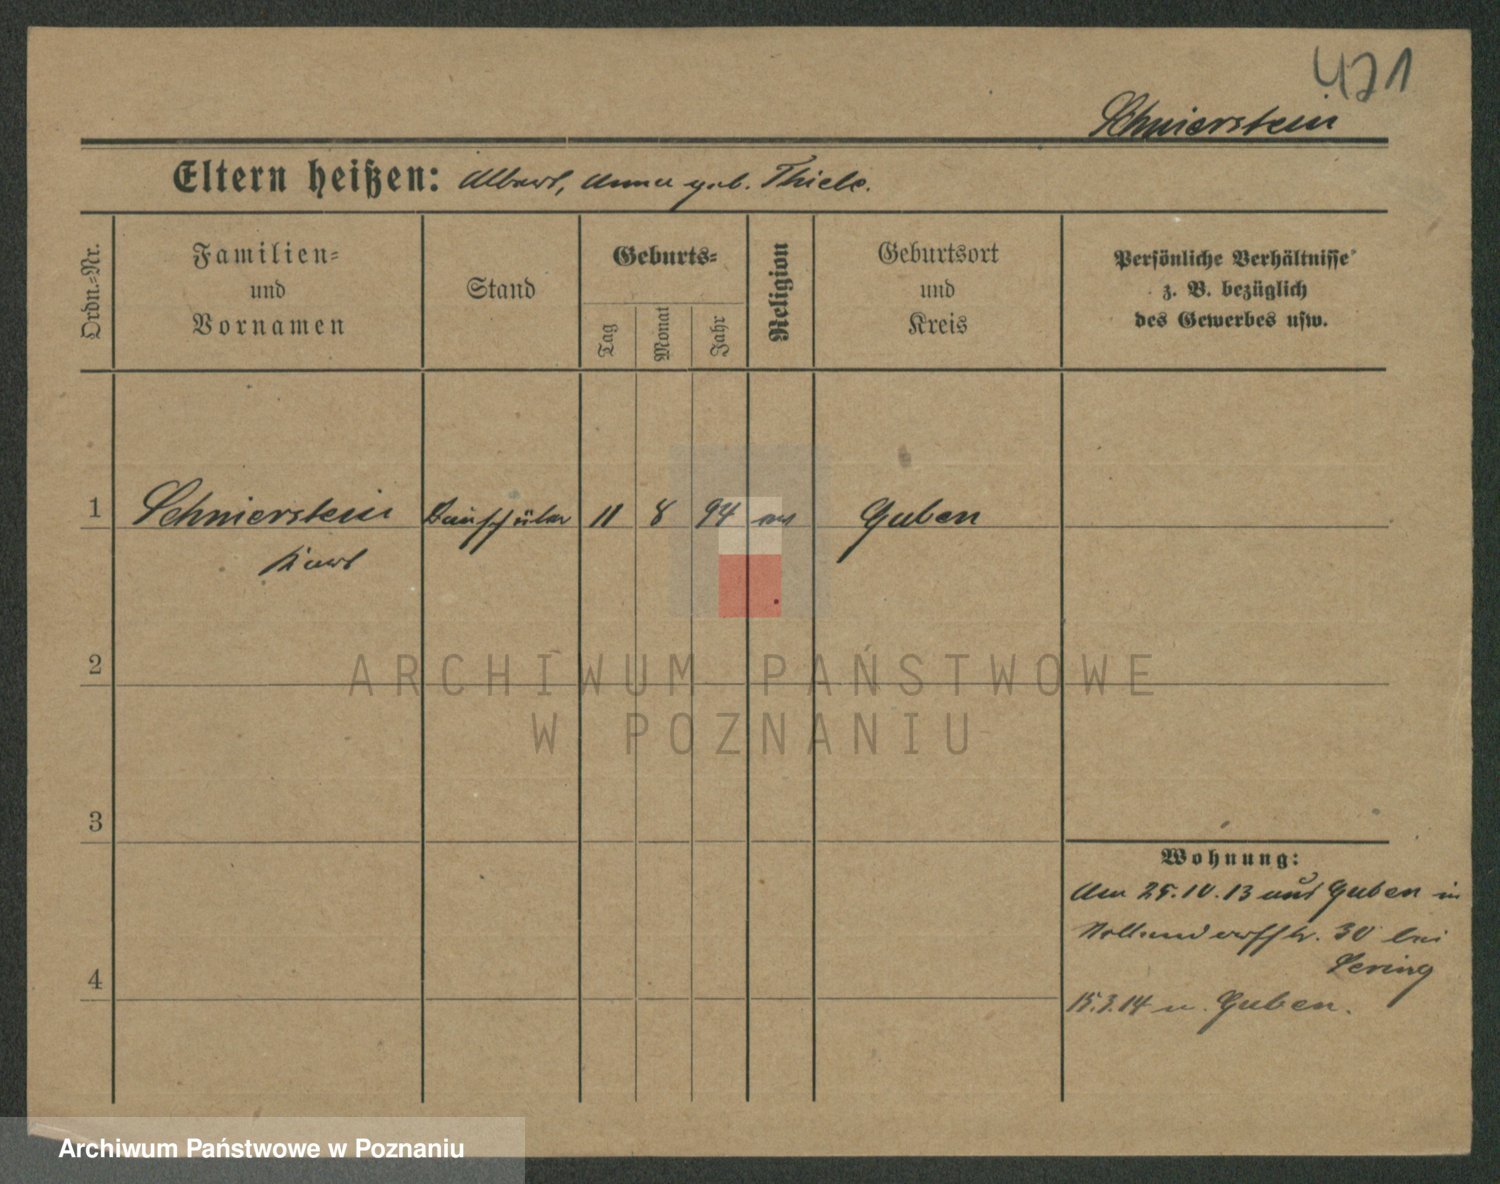 421
Schnierstein
Eltern heißen: Albert, Anna geb. Thiele.
Ordn.-Nr.
Familien-
und
Vornamen
Stand
Geburts-
Tag
Monat
Jahr
Religion
Geburtsort
und
Kreis
Persönliche Verhältnisse
z. B. bezüglich
des Gewerbes usw.
1 Schnierstein Bauschüler 11 8 94 ev Guben
Kurt
2
3
4
Wohnung:
Am 25.10.13 aus Guben in
30 bei
Sering
15.3.14 n. Guben.
ARCHIWUM PAŃSTWOWE
W POZNANIU
Archiwum Państwowe w Poznaniu